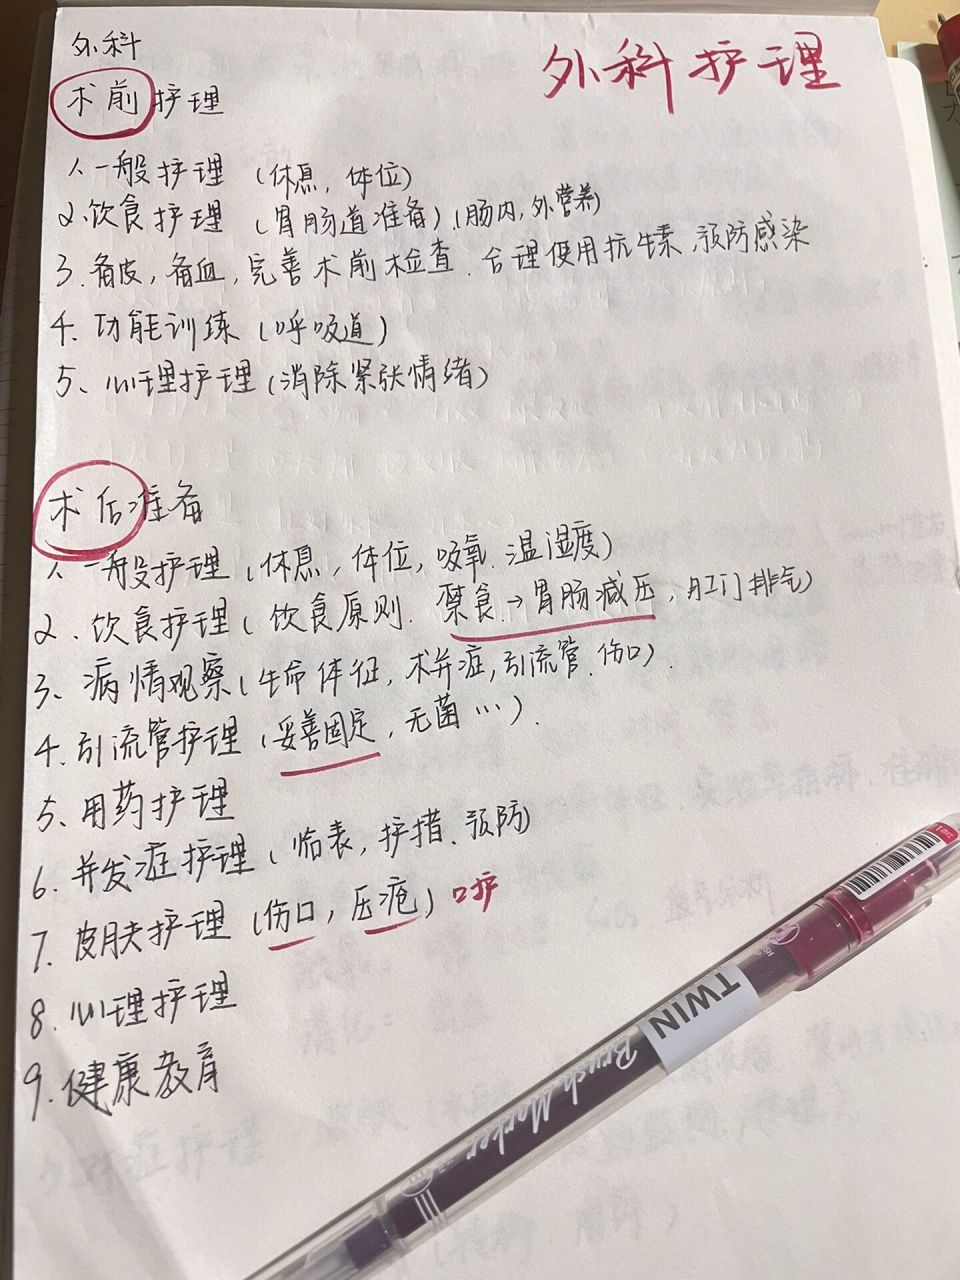 外科
外科护理
术前护理
1、一般护理 (休息, 体位)
2、饮食护理 (胃肠道准备) (肠内,外营养)
3、备皮, 备血, 完善术前检查. 合理使用抗生素、预防感染
4. 功能训练 (呼吸道)
5、心理护理 (消除紧张情绪)
术后准备
1、一般护理 (休息, 体位, 吸氧. 温湿度)
2、饮食护理 ( 饮食原则. 禁食→胃肠减压, 肛门排气)
3、病情观察 (生命体征, 术并症, 引流管. 伤口).
4、引流管护理 (妥善固定, 无菌 …).
5、用药护理
6、并发症护理 ( 临表, 护措、预防)
7、皮肤护理 (伤口, 压疮) 口护
8、心理护理
9. 健康教育
TWIN
Brush Marker